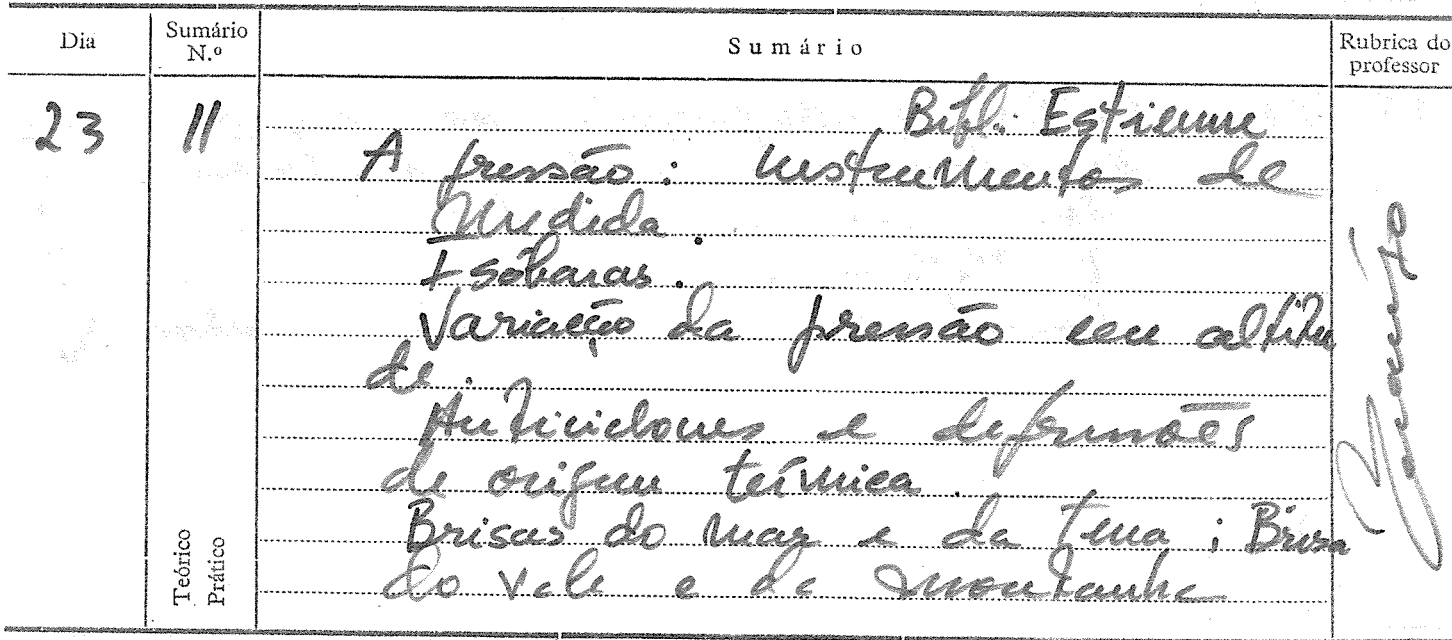 Dia
Sumário N.º
Sumário
Rubrica do professor
23
11
Bibl. Estienne
A pressão: instrumentos de
medida.
Isóbaras.
Variação da pressão em altitu
de.
Anticiclones e depressões
de origem térmica.
Brisas do mar e da terra; Brisa
do vale e da montanha
Teórico
Prático